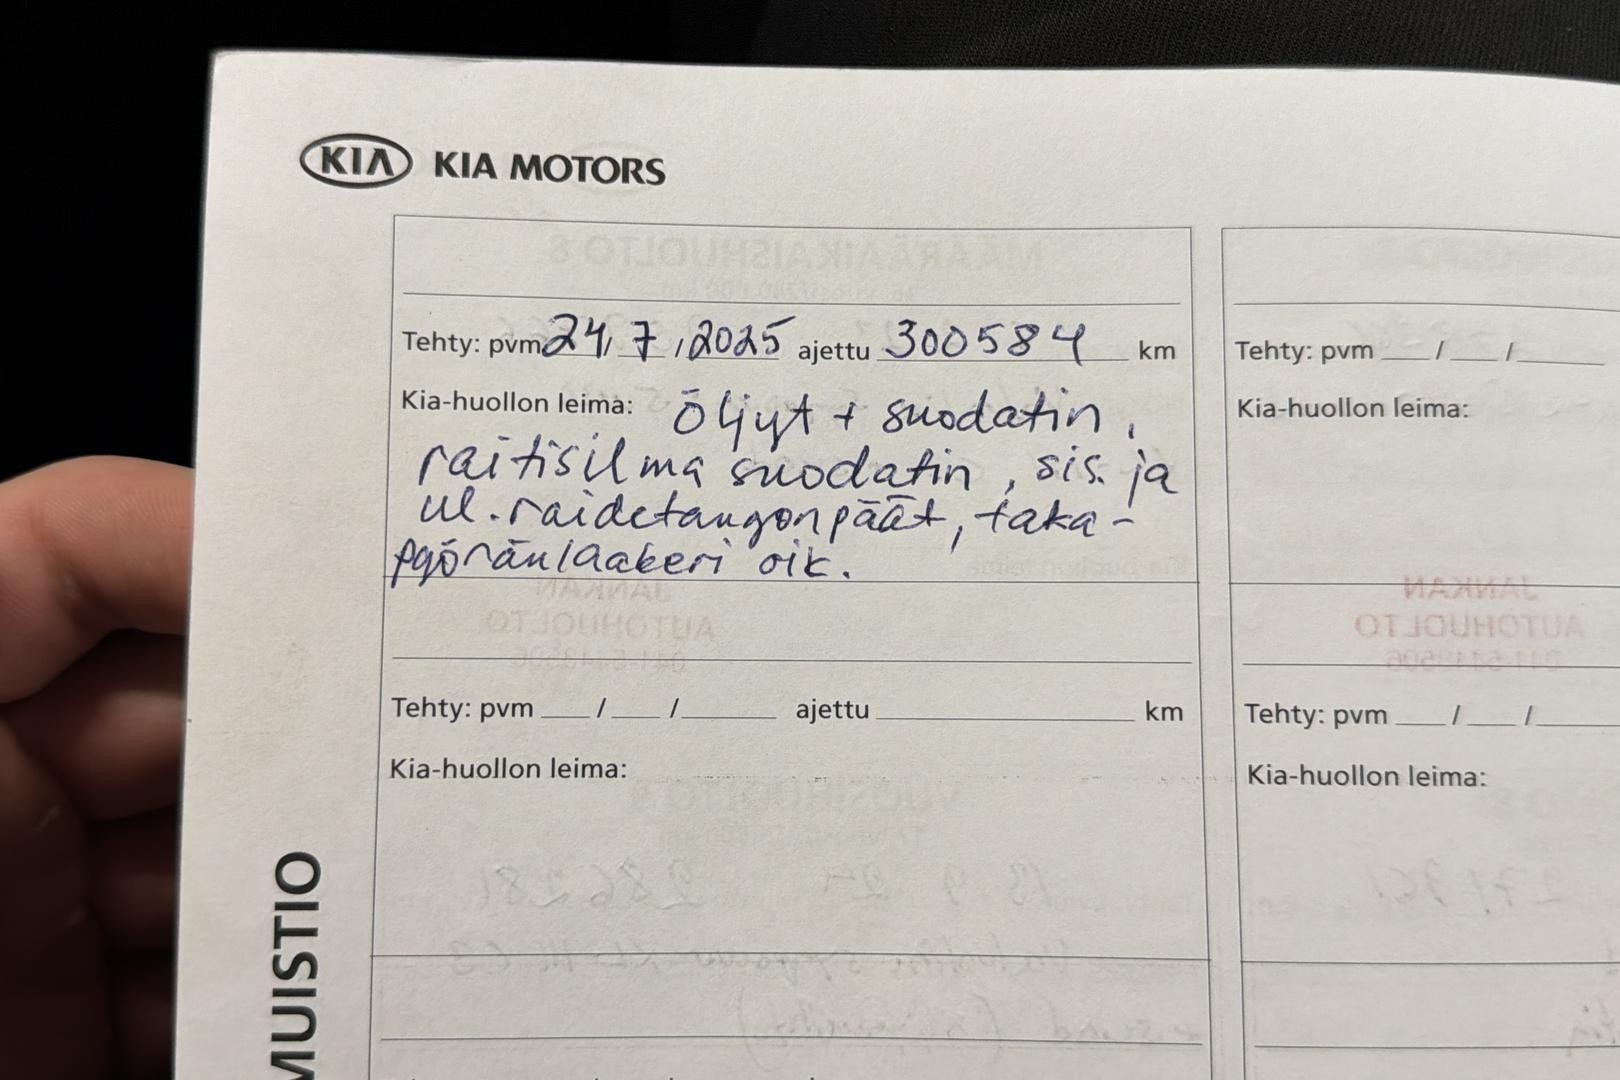 KIA KIA MOTORS
Tehty: pvm 24/7/2025 ajettu 300584 km
Kia-huollon leima: öljyt + suodatin,
raitisilma suodatin, sis. ja
ul. raidetangonpäät, taka-
pyöränlaakeri oik.
Tehty: pvm ___/___/______ ajettu ______ km
Kia-huollon leima:
Tehty: pvm ___/___/______
Kia-huollon leima:
Tehty: pvm ___/___/______
Kia-huollon leima:
MUISTIO
MÄÄRÄAIKAISHUOLTO 8
JANKAN
AUTOHUOLTO
JANKAN
AUTOHUOLTO